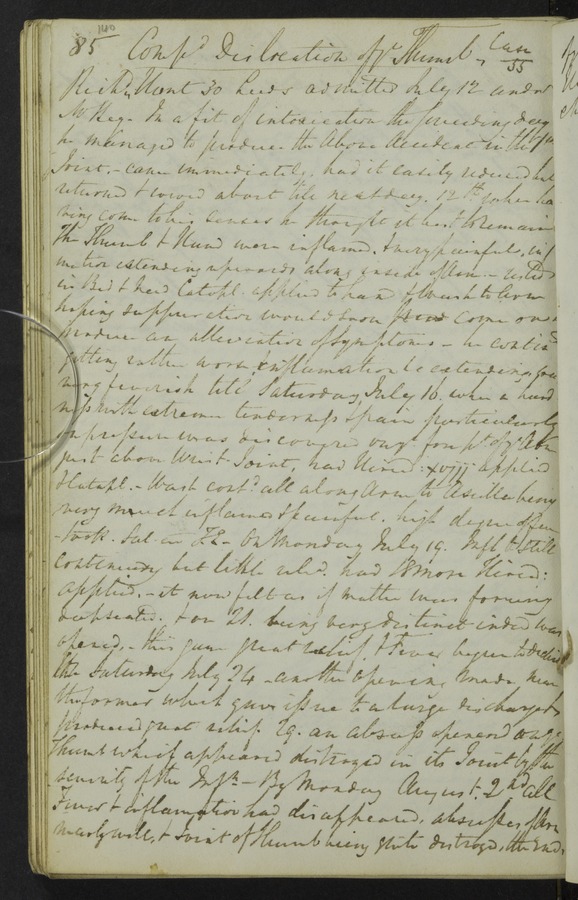 140
85 Comp.d Dislocation of ye Thumb, Case 55
Rich.d Hunt 30 Leeds admitted July 12 under
Mr Hey. In a fit of intoxication the preceeding day
he managed to produce the above Accident in the
Joint, - came immediately, had it easily reduced but
returned & about till next day, 12th when ha
ving come to his senses he thought it best to remain
The Thumb & Hand were inflamed & very painful, in
flmation extending upwards along inside of Arm -
in Bed & had Catapl. applied to hand & Wash to Arm
hoping suppuration would soon come on &
produce an alleviation of symptoms - he contin
getting rather worse, inflammation &c extending, grow
ing feverish till Saturday, July 16. when a hard
ness with extreme tenderness & pain particularly
on pressure was discovered over pt of ye Arm
just above Wrist Joint, had Hirud: xviij applied
& Catapl. - Wash contd all along Arm to Axilla being
very much inflamed & painful. high degree of fever
- Took Sal - On Monday July 19. Infl &c still
continuing but little reld. had 18 more Hirud:
applied, - it now felt as if matter was forming
deepseated. & on 21. being very distinct indeed was
opened, - this gave great relief & Fever began to decline
the Saturday July 24 - another opening made near
the former which gave issue to a large discharge &
produced great relief. 29. an abscess opened over ye
thumb which appeared distroyed in its Joint by the
severity of the Infn - By Monday August 2nd all
Fever & inflammation had disappeared, abscesses of Arm
nearly well, & Joint of thumb being quite distroyed, the End